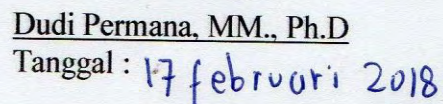 Dudi Permana, MM., Ph.D
Tanggal : 17 februari 2018